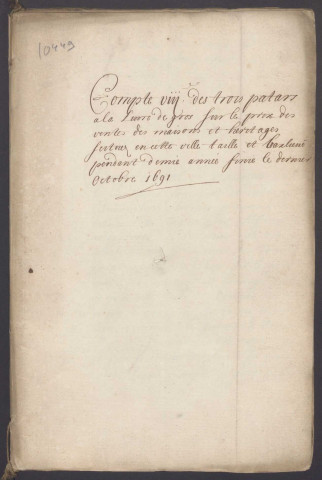 10449
Compte viij.e des trois patars
a la Livre de gros sur le prix des
ventes des maisons et héritages
scituez en cette ville taille et banlieue
pendant demie année finie le dernier
Octobre 1691